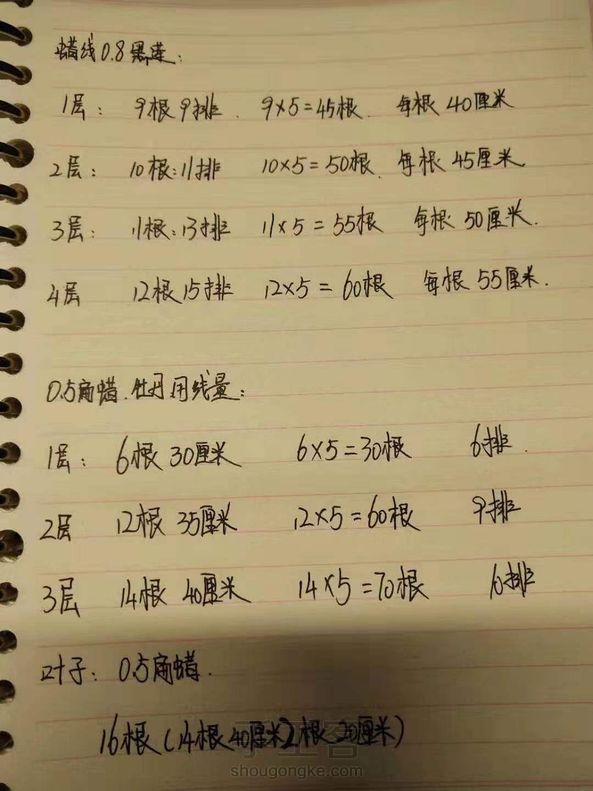 蜡线0.8黑莲:
1层: 9根9排. 9×5=45根. 每根40厘米
2层: 10根:11排 10×5=50根. 每根45厘米.
3层: 11根:13排 11×5=55根 每根50厘米.
4层 12根15排 12×5=60根 每根55厘米.
0.5扁蜡.牡丹用线量:
1层: 6根30厘米 6×5=30根 6排.
2层 12根35厘米 12×5=60根 9排
3层 14根40厘米 14×5=70根 10排
叶子: 0.5扁蜡.
16根(14根40厘米2根20厘米)
手工客
shougongke.com